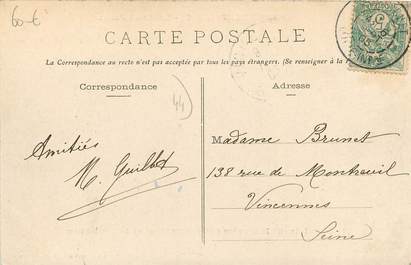 60-€
CARTE POSTALE
La Correspondance au recto n'est pas acceptée par tous les pays étrangers. (Se renseigner à la
Correspondance
Adresse
44
Amitiés
M. Guillot
Madame Brunet
138 rue de Montreuil
Vincennes
Seine